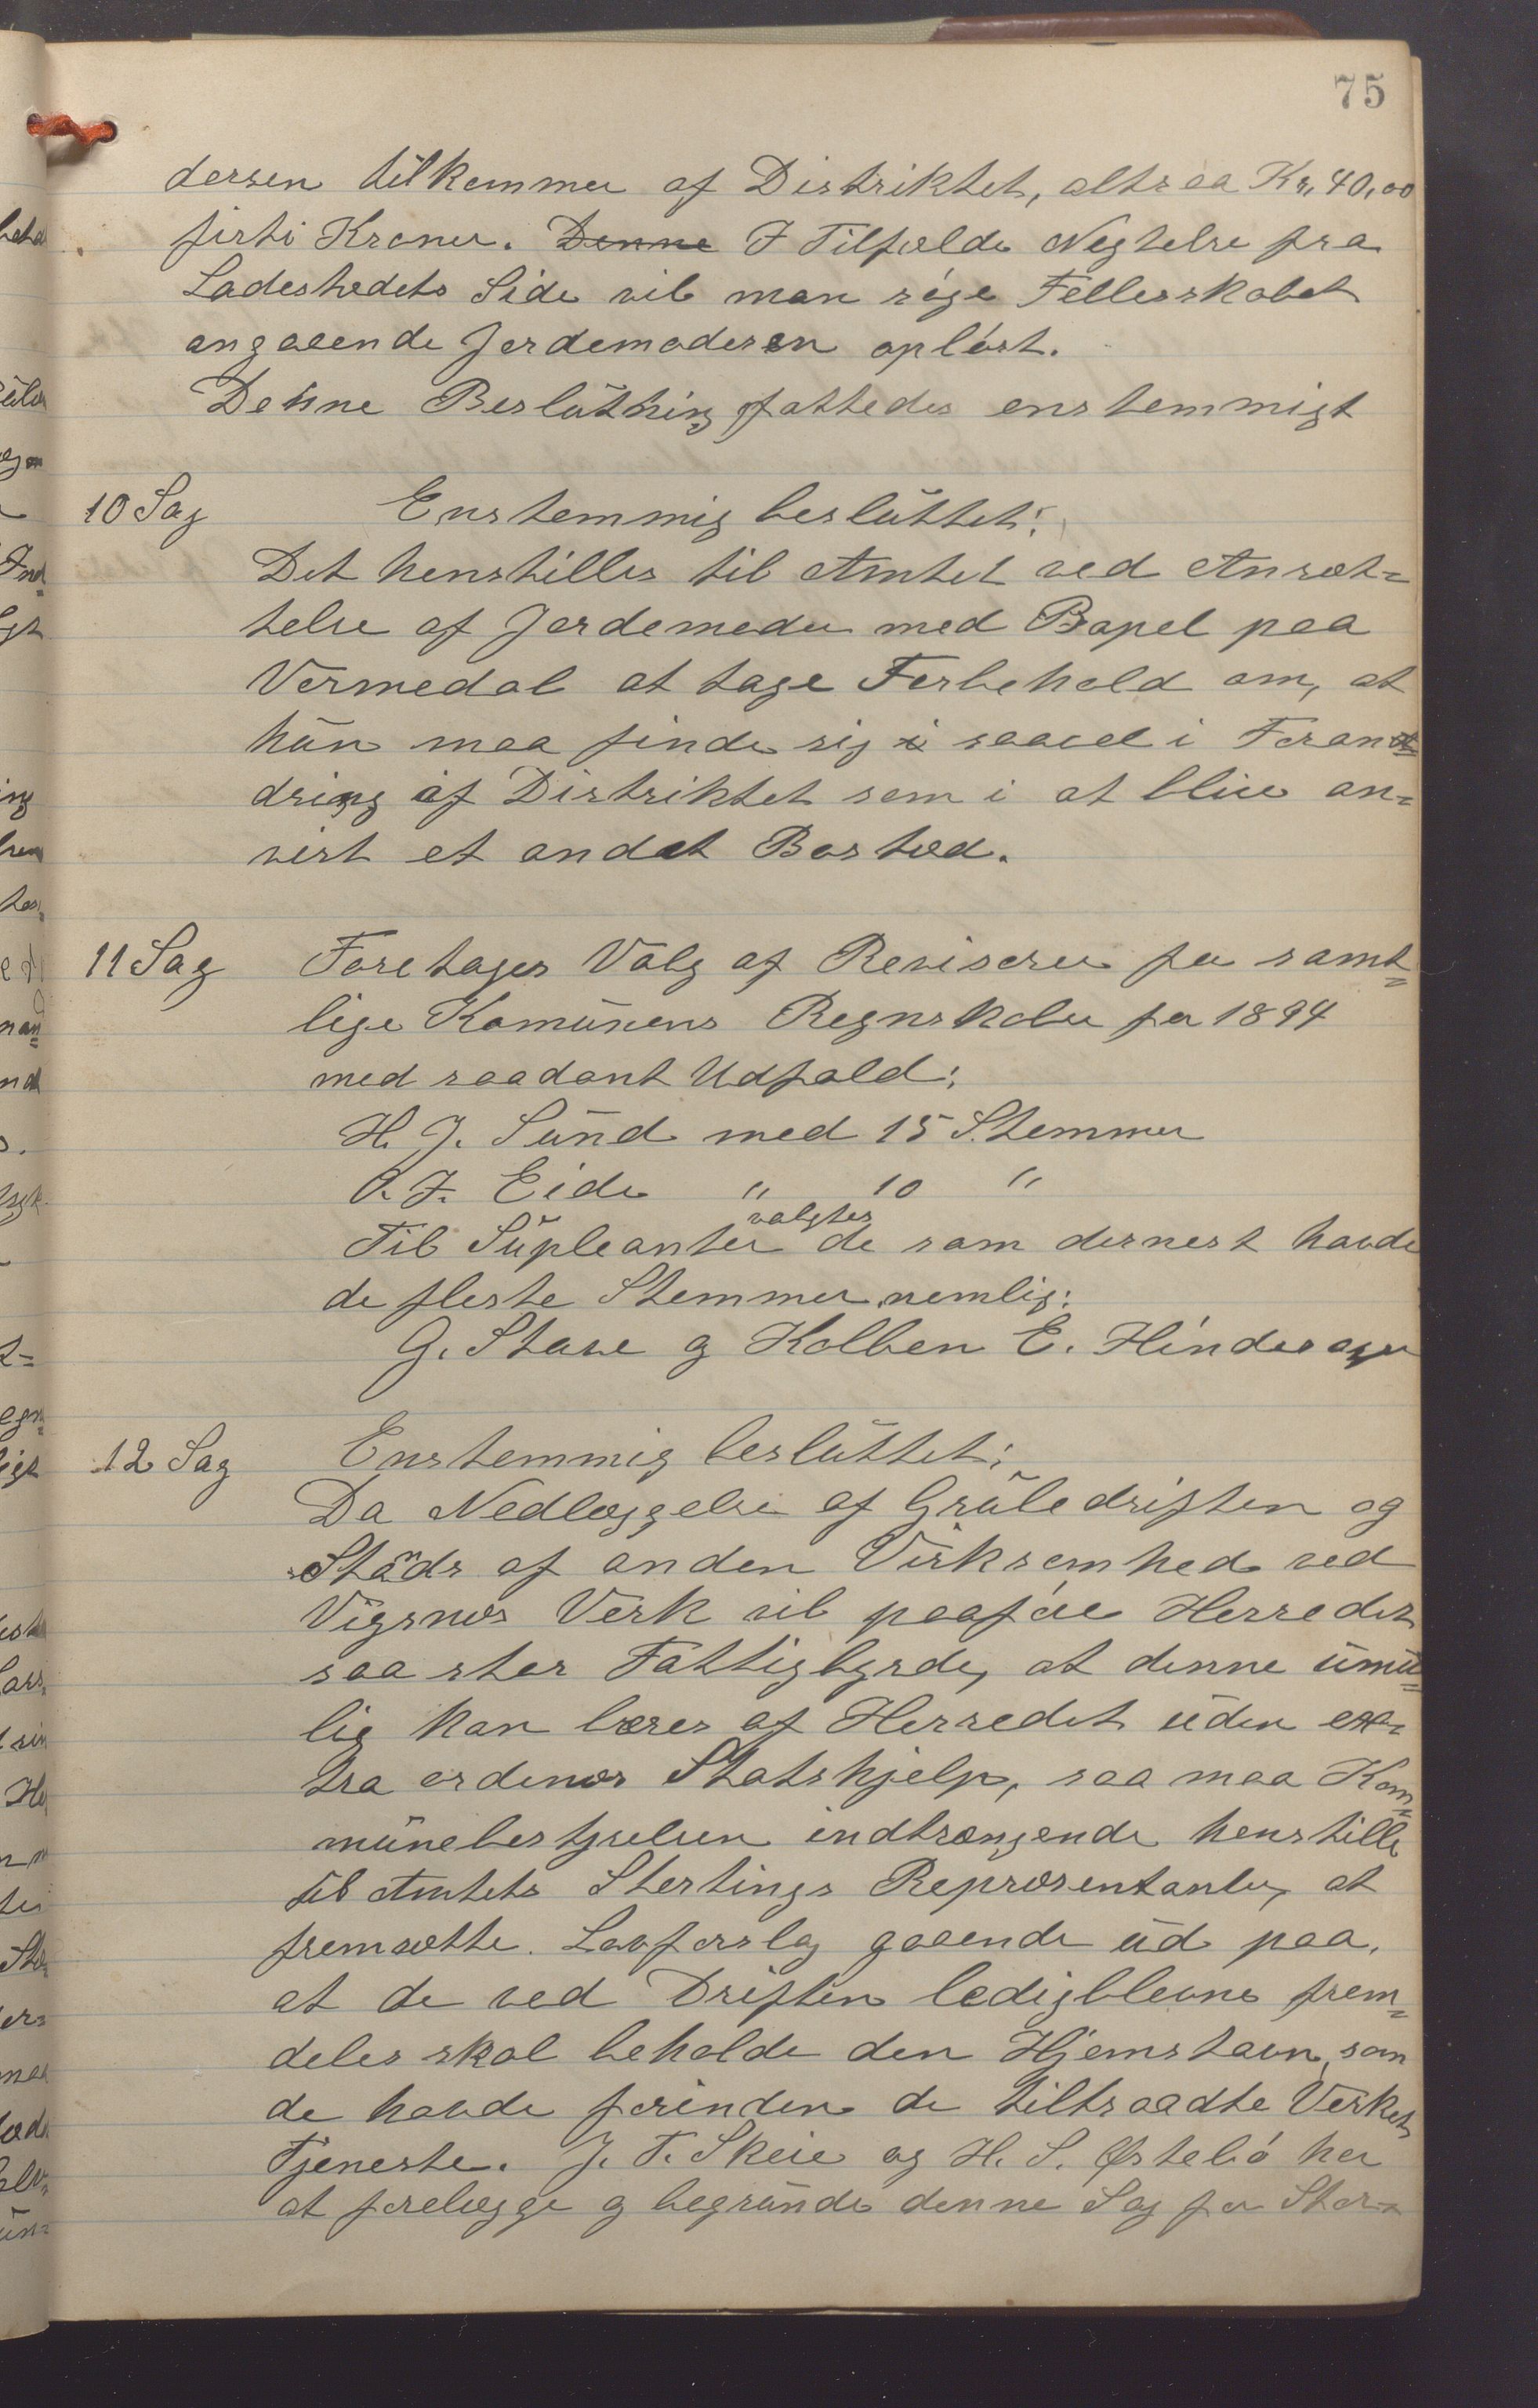 75
dersen tilkommer af Distriktet, altsaa Kr. 40,00
firti Kroner. Denne I Tilfælde Negtelse fra
Ladestedets Side vil man søge Fellesskabet
angaaende Jordemoderen opløst.
Denne Beslutning fattedes enstemmigt
10 Sag Enstemmig besluttet:
Det henstilles til Amtet ved Ansæt=
telse af Jordemoder med Bopel paa
Vormedal at tage Forbehold om, at
hun maa finde sig i saavel i Foran=
dring af Distriktet som i at blive an=
vist et andet Bosted.
11 Sag Foretages Valg af Revisorer for samt=
lige Komunens Regnskaber for 1894
med saadant Udfald:
H. J. Sund med 15 Stemmer
O. J. Eide " 10 "
valgtes
Til Supleanter de som dernest havde
de fleste Stemmer nemlig:
G. Stave og Kolben E. Hinderager
12 Sag Enstemmig besluttet:
Da Nedlæggelse af Grubedriften og
Stands af anden Virksomhed ved
Vigsnes Verk vil paaføre Herredet
saa stor Fattigbyrde, at denne umu=
lig kan bæres af Herredet uden ex=
tra ordinær Statshjelp, saa maa Kom=
munebestyrelsen indtrængende henstille
til Amtets Stortings Repræsentanter, at
fremsætte Lovforslag gaaende ud paa,
at de ved Driften ledigblevne frem=
deles skal beholde den Hjemstavn, som
de havde forinden de tiltraadte Verkets
Tjeneste. J. T. Skeie og H. S. Østebø har
at forelægge og begrunde denne Sag for Stor=